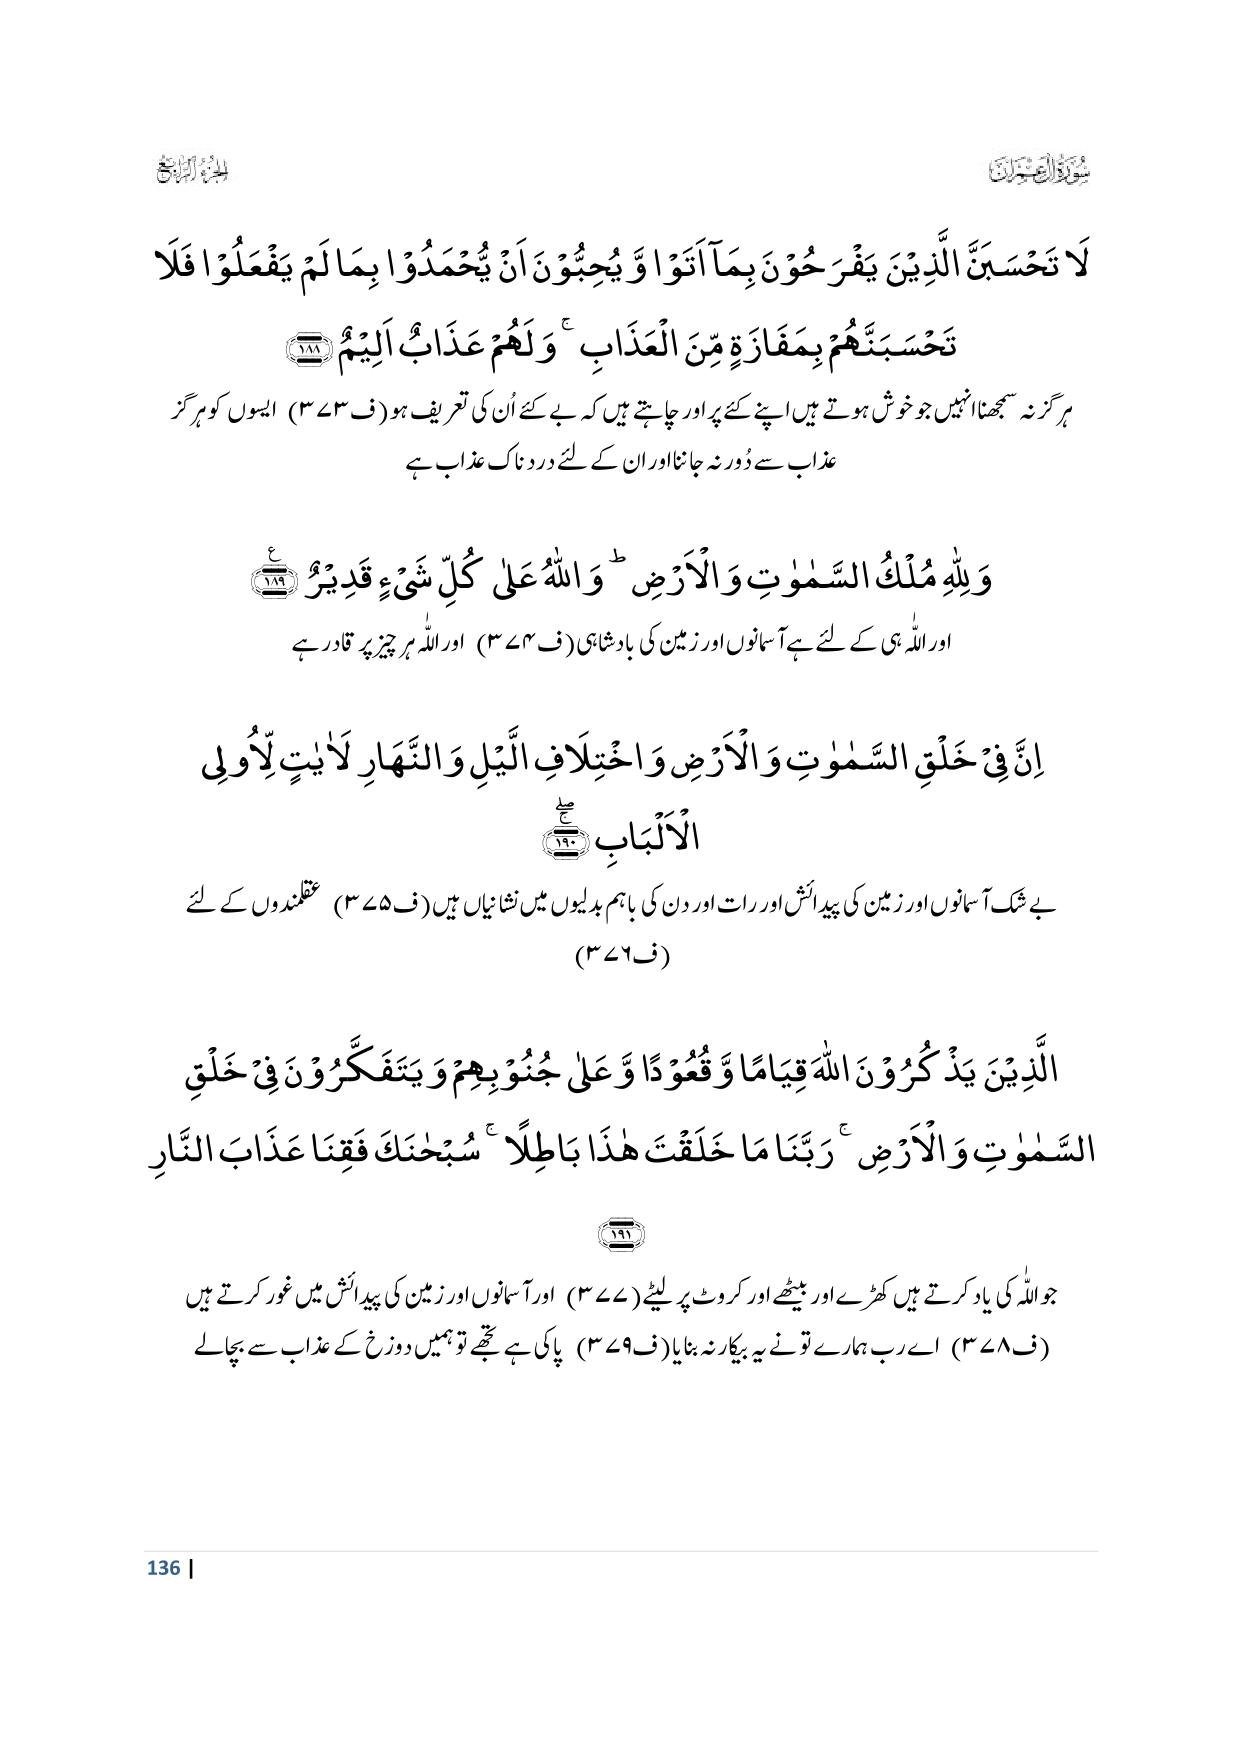 سُوْرَةُ اٰلِ عِمْرَان الجزء الرابع
لَا تَحْسَبَنَّ الَّذِیْنَ یَفْرَحُوْنَ بِمَاۤ اَتَوْا وَّ یُحِبُّوْنَ اَنْ یُّحْمَدُوْا بِمَا لَمْ یَفْعَلُوْا فَلَا
تَحْسَبَنَّهُمْ بِمَفَازَةٍ مِّنَ الْعَذَابِ ۚ وَ لَهُمْ عَذَابٌ اَلِیْمٌ ﴿۱۸۸﴾
ہرگز نہ سمجھنا انہیں جو خوش ہوتے ہیں اپنے کئے پر اور چاہتے ہیں کہ بے کئے اُن کی تعریف ہو (ف۳۷۳) ایسوں کو ہرگز
عذاب سے دُور نہ جاننا اور ان کے لئے دردناک عذاب ہے
وَ لِلّٰهِ مُلْكُ السَّمٰوٰتِ وَ الْاَرْضِ ؕ وَ اللّٰهُ عَلٰی كُلِّ شَیْءٍ قَدِیْرٌ ﴿۱۸۹﴾ ع
اور اللّٰہ ہی کے لئے ہے آسمانوں اور زمین کی بادشاہی (ف۳۷۴) اور اللّٰہ ہر چیز پر قادر ہے
اِنَّ فِیْ خَلْقِ السَّمٰوٰتِ وَ الْاَرْضِ وَ اخْتِلَافِ الَّیْلِ وَ النَّهَارِ لَاٰیٰتٍ لِّاُولِی
الْاَلْبَابِ ﴿۱۹۰﴾ ۚۖ
بے شک آسمانوں اور زمین کی پیدائش اور رات اور دن کی باہم بدلیوں میں نشانیاں ہیں (ف۳۷۵) عقلمندوں کے لئے
(ف۳۷۶)
الَّذِیْنَ یَذْكُرُوْنَ اللّٰهَ قِیَامًا وَّ قُعُوْدًا وَّ عَلٰی جُنُوْبِهِمْ وَ یَتَفَكَّرُوْنَ فِیْ خَلْقِ
السَّمٰوٰتِ وَ الْاَرْضِ ۚ رَبَّنَا مَا خَلَقْتَ هٰذَا بَاطِلًا ۚ سُبْحٰنَكَ فَقِنَا عَذَابَ النَّارِ
﴿۱۹۱﴾
جو اللّٰہ کی یاد کرتے ہیں کھڑے اور بیٹھے اور کروٹ پر لیٹے (۳۷۷) اور آسمانوں اور زمین کی پیدائش میں غور کرتے ہیں
(ف۳۷۸) اے رب ہمارے تو نے یہ بیکار نہ بنایا (ف۳۷۹) پاکی ہے تجھے تو ہمیں دوزخ کے عذاب سے بچالے
136 |